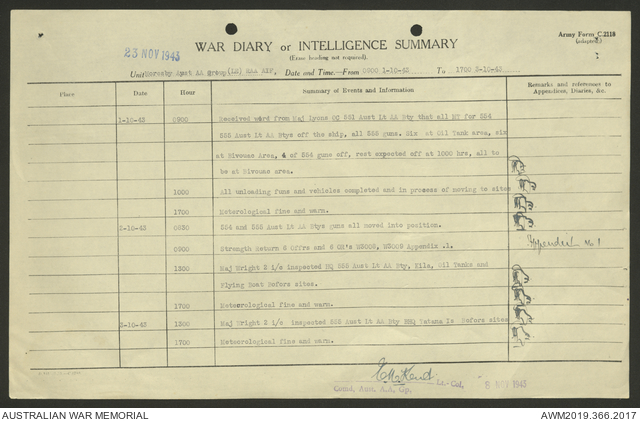 23 NOV 1943
WAR DIARY or INTELLIGENCE SUMMARY
(Erase heading not required).
Army Form C.2118
(adapted)
Unit Moresby Aust AA Group (LH) RAA AIF. Date and Time.—From 0900 1-10-43 To 1700 3-10-43
Place Date Hour Summary of Events and Information Remarks and references to
Appendices, Diaries, &c.
1-10-43 0900 Received word from Maj Lyons OC 551 Aust Lt AA Bty that all MT for 554
555 Aust Lt AA Btys off the ship, all 555 guns. Six at Oil Tank area, six
at Bivouac Area, 4 of 554 guns off, rest expected off at 1000 hrs, all to
be at Bivouac area.
1000 All unloading funs and vehicles completed and in process of moving to sites
1700 Meterological fine and warm.
2-10-43 0830 554 and 555 Aust Lt AA Btys guns all moved into position.
0900 Strength Return 6 Offrs and 6 OR's W3008, W3009 Appendix .1. Appendix No 1
1300 Maj Wright 2 i/c inspected HQ 555 Aust Lt AA Bty, Kila, Oil Tanks and
Flying Boat Bofors sites.
1700 Meteorological fine and warm.
3-10-43 1300 Maj Wright 2 i/c inspected 555 Aust Lt AA Bty BHQ Tatana Is Bofors sites
1700 Meteorological fine and warm.
Lt-Col,
Comd, Aust. A.A. Gp.
1943
AUSTRALIAN WAR MEMORIAL
AWM2019.366.2017